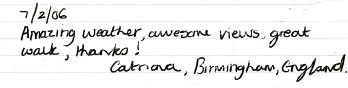 7/2/06
Amazing weather, awesome views, great
walk, thanks!
Catriona, Birmingham, England.